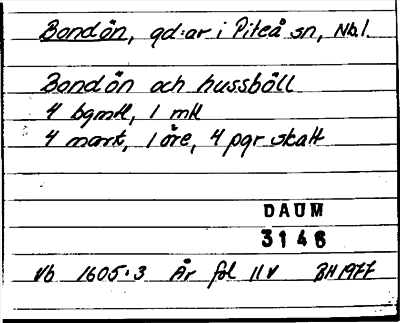 Bondön, gd:ar i Piteå sn, Nb.l.
Bondön och hussböll
4 bgmtl, 1 mtl
4 mark, 1 öre, 4 pgr skatt
DAUM
3146
Vb 1605:3 År fol 11v BH 1977